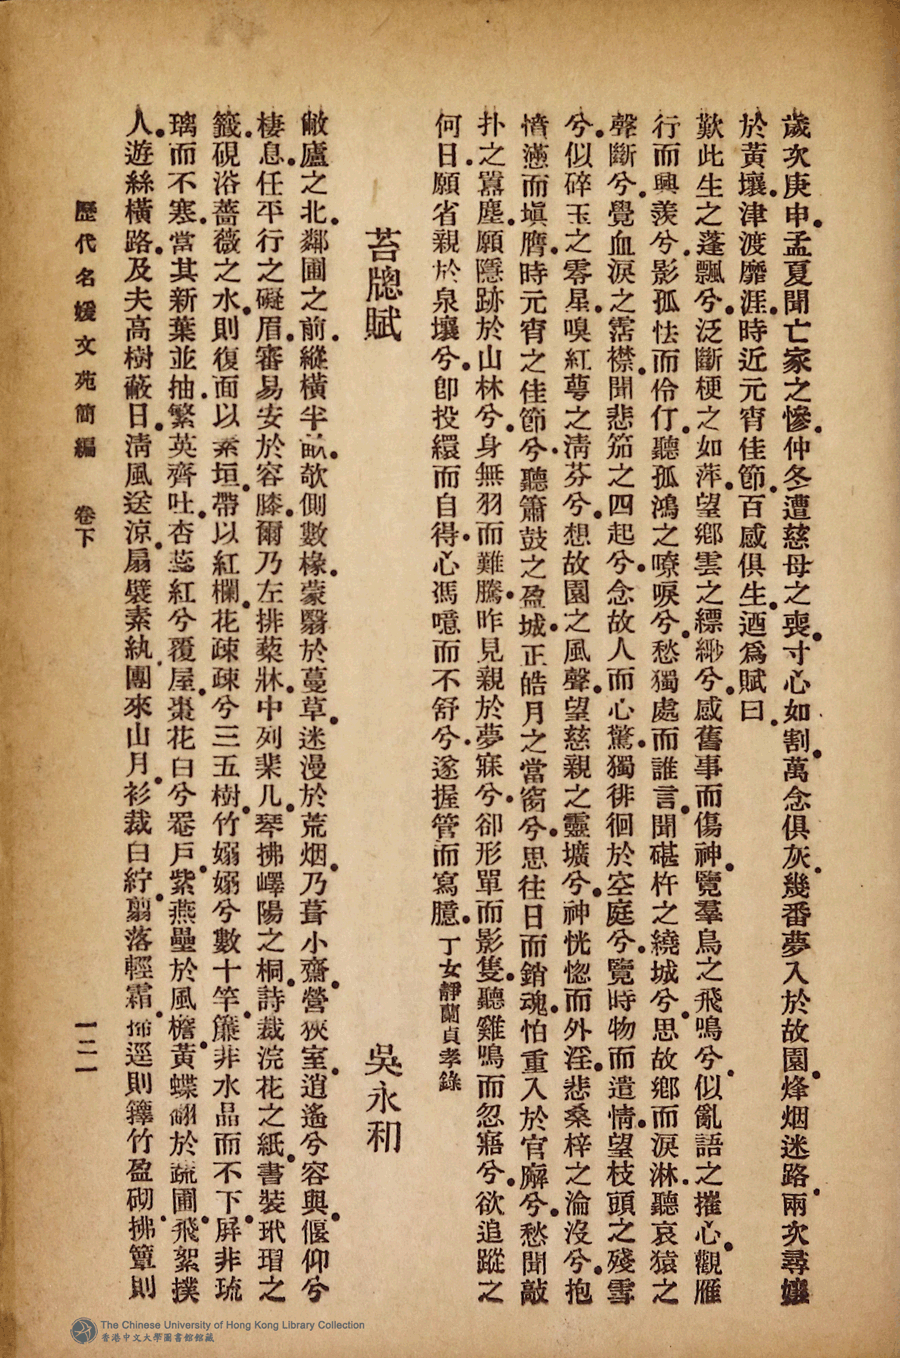 歲次庚申。孟夏聞亡家之慘。仲冬遭慈母之喪。寸心如割。萬念俱灰。幾番夢入於故園。烽烟迷路。兩次尋孃
於黃壤。津渡靡涯。時近元宵佳節。百感俱生。迺爲賦曰。
歎此生之蓬飄兮。泛斷梗之如萍。望鄉雲之縹緲兮。感舊事而傷神。覽羣鳥之飛鳴兮。似亂語之摧心。觀雁
行而興羨兮。影孤怯而伶仃。聽孤鴻之嘹唳兮。愁獨處而誰言。聞碪杵之繞城兮。思故鄉而淚淋。聽哀猿之
聲斷兮。覺血淚之霑襟。聞悲笳之四起兮。念故人而心驚。獨徘徊於空庭兮。覽時物而遣情。望枝頭之殘雪
兮。似碎玉之零星。嗅紅萼之清芬兮。想故園之風聲。望慈親之靈壙兮。神恍惚而外淫。悲桑梓之淪沒兮。抱
憤懣而塡膺。時元宵之佳節兮。聽簫鼓之盈城。正皓月之當窗兮。思往日而銷魂。怕重入於官廨兮。愁聞敲
扑之囂塵。願隱跡於山林兮。身無羽而難騰。昨見親於夢寐兮。卻形單而影隻。聽雞鳴而忽寤兮。欲追蹤之
何日。願省親於泉壤兮。卽投繯而自得。心馮噫而不舒兮。遂握管而寫臆。丁女靜蘭貞孝錄
苔牕賦 吳永和
敝廬之北。鄰圃之前。縱橫半畝。欹側數椽。蒙翳於蔓草。迷漫於荒烟。乃葺小齋。營狹室。逍遙兮容與。偃仰兮
棲息。任平行之礙眉。審易安於容膝。爾乃左排藜牀。中列棐几。琴拂嶧陽之桐。詩裁浣花之紙。書裝玳瑁之
籤。硯浴薔薇之水。則復面以素垣。帶以紅欄。花疎疎兮三五樹。竹嫋嫋兮數十竿。簾非水晶而不下。屏非琉
璃而不寒。當其新葉並抽。繁英齊吐。杏蕊紅兮覆屋。棗花白兮罨戶。紫燕壘於風檐。黃蝶翩於疏圃。飛絮撲
人。遊絲橫路。及夫高樹蔽日。清風送涼。扇襞素紈。團來山月。衫裁白紵。翦落輕霜。掃逕則籜竹盈砌。拂簟則
歷代名媛文苑簡編 卷下 一二一
The Chinese University of Hong Kong Library Collection
香港中文大學圖書館館藏